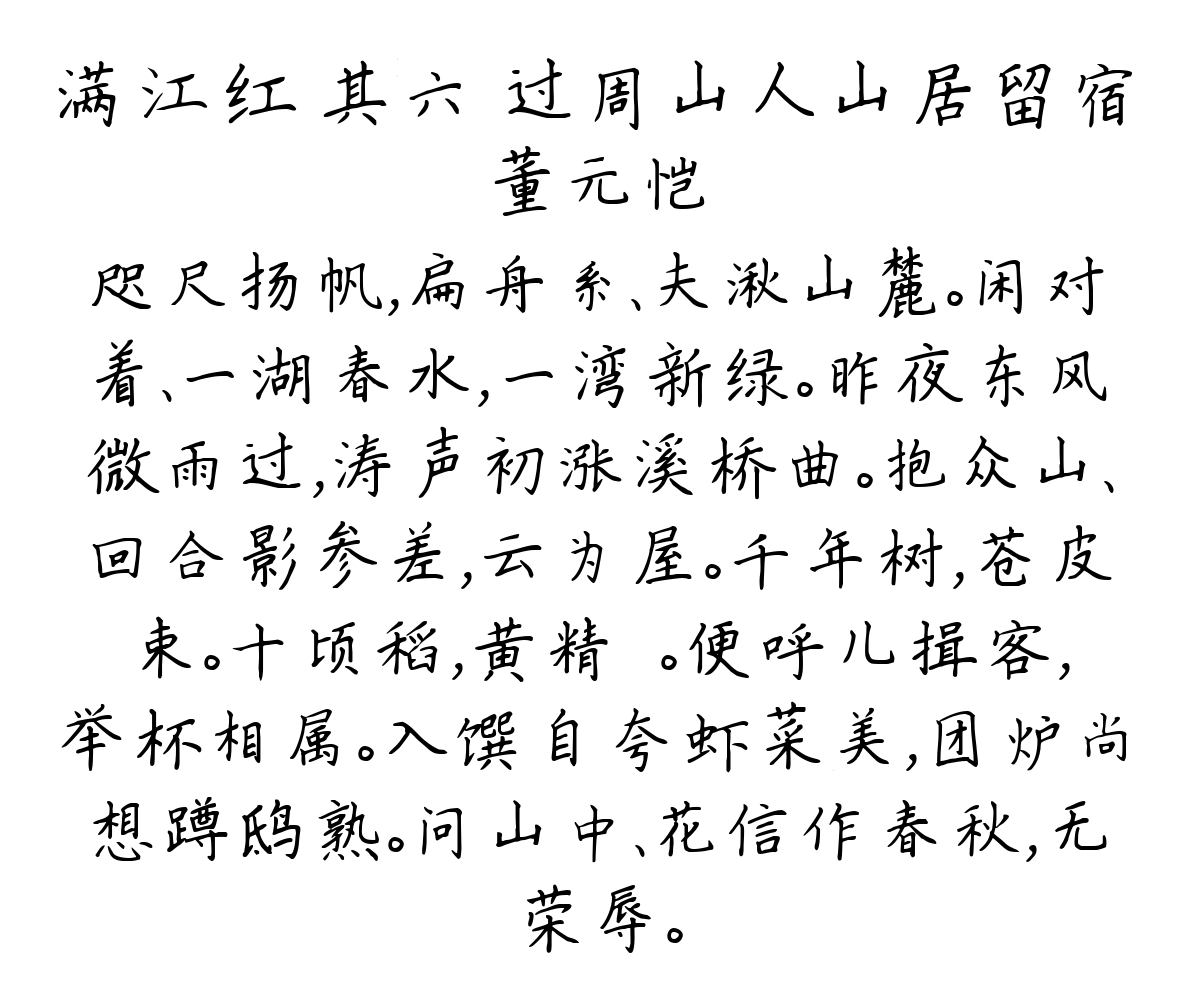 满江红 其六 过周山人山居留宿
董元恺
咫尺扬帆,扁舟系、夫湫山麓。闲对
着、一湖春水,一湾新绿。昨夜东风
微雨过,涛声初涨溪桥曲。抱众山、
回合影参差,云为屋。千年树,苍皮
束。十顷稻,黄精 。便呼儿揖客,
举杯相属。入馔自夸虾菜美,团炉尚
想蹲鸱熟。问山中、花信作春秋,无
荣辱。